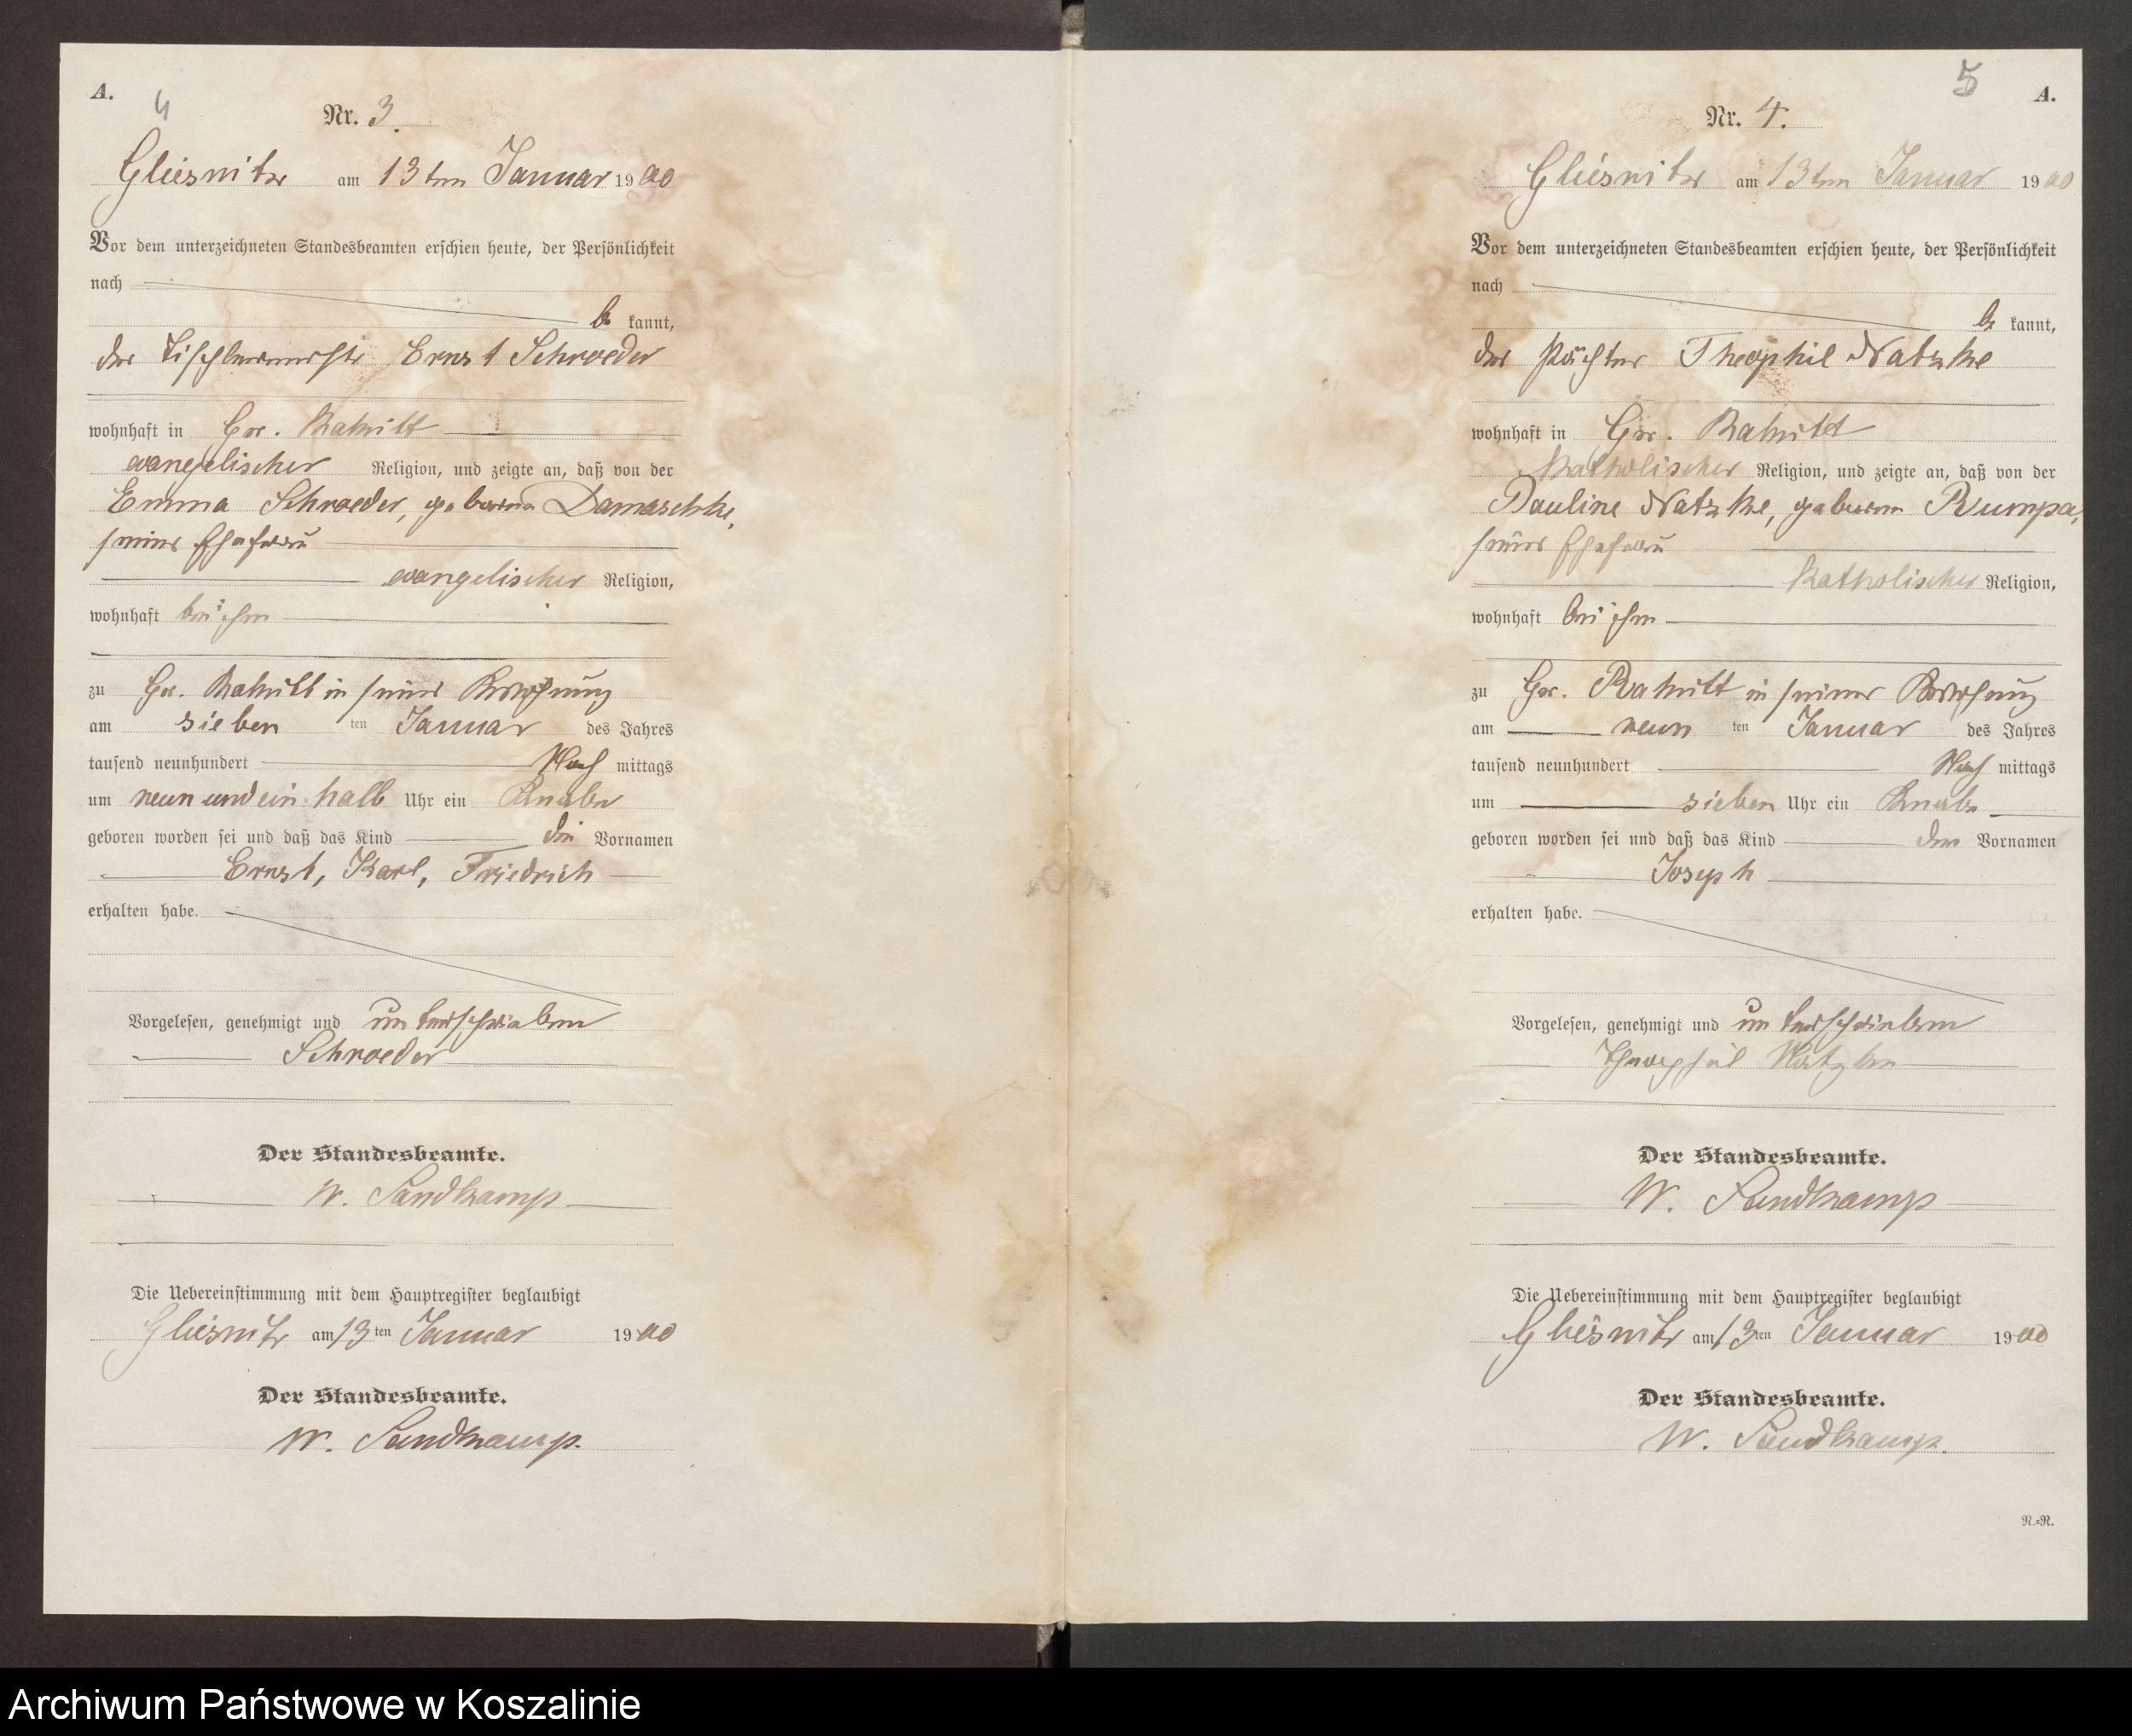 A.
4
Nr. 3.
Gliesnitz am 13ten Januar 1900
Vor dem unterzeichneten Standesbeamten erschien heute, der Persönlichkeit
nach
be kannt,
der Tischlermeister Ernst Schroeder
wohnhaft in Gr. Rakitt
evangelischer Religion, und zeigte an, daß von der
Emma Schroeder, geborene Damaschke,
seiner Ehefrau
evangelischer Religion,
wohnhaft bei ihm
zu Gr. Rakitt in seiner Wohnung
am sieben ten Januar des Jahres
tausend neunhundert Nach mittags
um neun und ein halb Uhr ein Knabe
geboren worden sei und daß das Kind die Vornamen
Ernst, Karl, Friedrich
erhalten habe.
Vorgelesen, genehmigt und unterschrieben
Schroeder
Der Standesbeamte.
W. Sandkamp
Die Uebereinstimmung mit dem Hauptregister beglaubigt
Gliesnitz am 13ten Januar 1900
Der Standesbeamte.
W. Sandkamp.
5
A.
Nr. 4.
Gliesnitz am 13ten Januar 1900
Vor dem unterzeichneten Standesbeamten erschien heute, der Persönlichkeit
nach
be kannt,
der Pächter Theophil Natzke
wohnhaft in Gr. Rakitt
katholischer Religion, und zeigte an, daß von der
Pauline Natzke, geborene Rumpa,
seiner Ehefrau
katholischer Religion,
wohnhaft bei ihm
zu Gr. Rakitt in seiner Wohnung
am neun ten Januar des Jahres
tausend neunhundert Nach mittags
um sieben Uhr ein Knabe
geboren worden sei und daß das Kind den Vornamen
Joseph
erhalten habe.
Vorgelesen, genehmigt und unterschrieben
Theophil Natzke
Der Standesbeamte.
W. Sandkamp
Die Uebereinstimmung mit dem Hauptregister beglaubigt
Gliesnitz am 13ten Januar 1900
Der Standesbeamte.
W. Sandkamp.
N.=R.
Archiwum Państwowe w Koszalinie